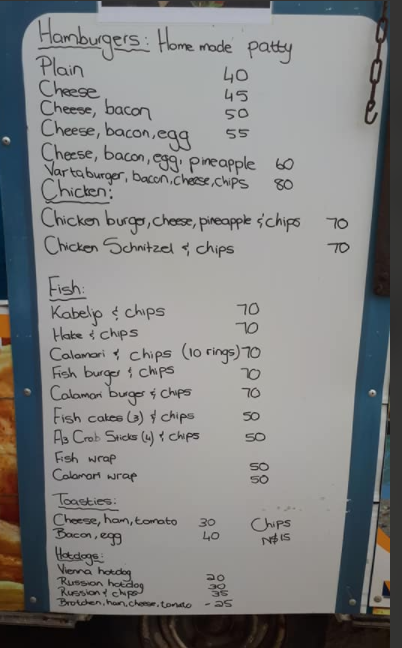 Hamburgers: Home made patty
Plain 40
Cheese 45
Cheese, bacon 50
Cheese, bacon, egg 55
Cheese, bacon, egg, pineapple 60
Vartaburger, bacon, cheese, chips 80
Chicken:
Chicken burger, cheese, pineapple & chips 70
Chicken Schnitzel & chips 70
Fish:
Kabeljo & chips 70
Hake & chips 70
Calamari & chips (10 rings) 70
Fish burger & chips 70
Calamari burger & chips 70
Fish cakes (3) & chips 50
Crab Sticks (4) & chips 50
Fish wrap 50
Calamari wrap 50
Toasties:
Cheese, ham, tomato 30
Bacon, egg 40
Chips
N$15
Hotdogs:
Vienna hotdog 20
Russian hotdog 30
Russian & chips 35
Brotchen, ham, cheese, tomato - 25